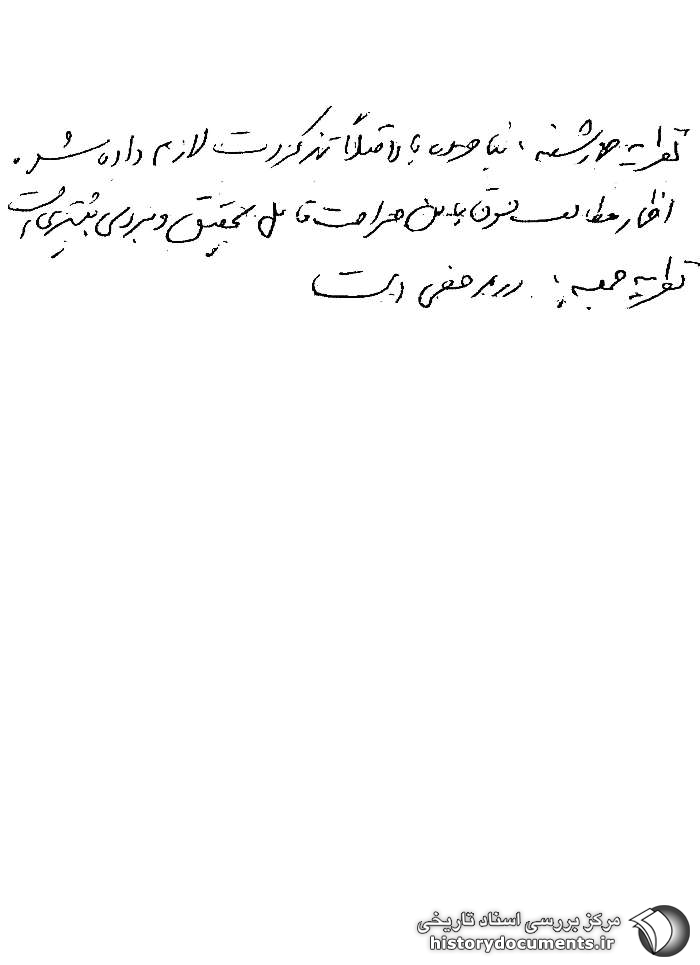 نظریه چهارشنبه: نیا جهت بالا قبلاً تذکرت لازم داده شد.
اظهار مطالب فوق باین صراحت قابل تحقیق و بررسی بیشتری است
نظریه جمعه: در مرخصی است
مرکز بررسی اسناد تاریخی
historydocuments.ir